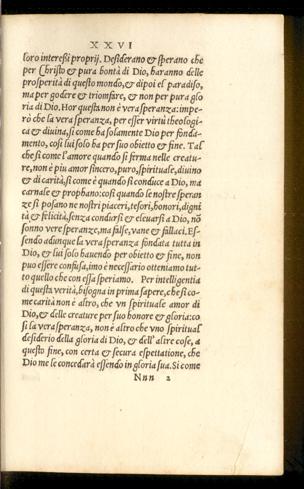 X X V I
loro interessi proprij. Desiderano & sperano che
per Christo & pura bontà di Dio, haranno delle
prosperità di questo mondo, & dipoi el paradiso,
ma per godere & triomfare, & non per pura glo
ria di Dio. Hor questa non è vera speranza: impe=
rò che la vera speranza, per esser virtù theologi=
ca & diuina, si come ha solamente Dio per fonda=
mento, così lui solo ha per suo obietto & fine. Tal
che si come l'amore quando si ferma nelle creatu=
re, non è piu amor sincero, puro, spirituale, diuino
& di carità, si come è quando si conduce a Dio, ma
carnale & prophano: così quando le nostre speran
ze si posano ne nostri piaceri, tesori, honori, digni
tà & felicità, senza condursi & eleuarsi a Dio, nō
sonno vere speranze, ma false, vane & fallaci. Es=
sendo adunque la vera speranza fondata tutta in
Dio, & lui solo hauendo per obietto & fine, non
puo essere confusa, imo è necessario otteniamo tut=
to quello che con essa speriamo. Per intelligentia
di questa verità, bisogna in prima sapere, che si co=
me carità non è altro, che vn spirituale amor di
Dio, & delle creature per suo honore & gloria: co
si la vera speranza, non è altro che vno spiritual
desiderio della gloria di Dio, & dell' altre cose, a
questo fine, con certa & secura espettatione, che
Dio me le concedarà essendo in gloria sua. Si come
Nnn 2